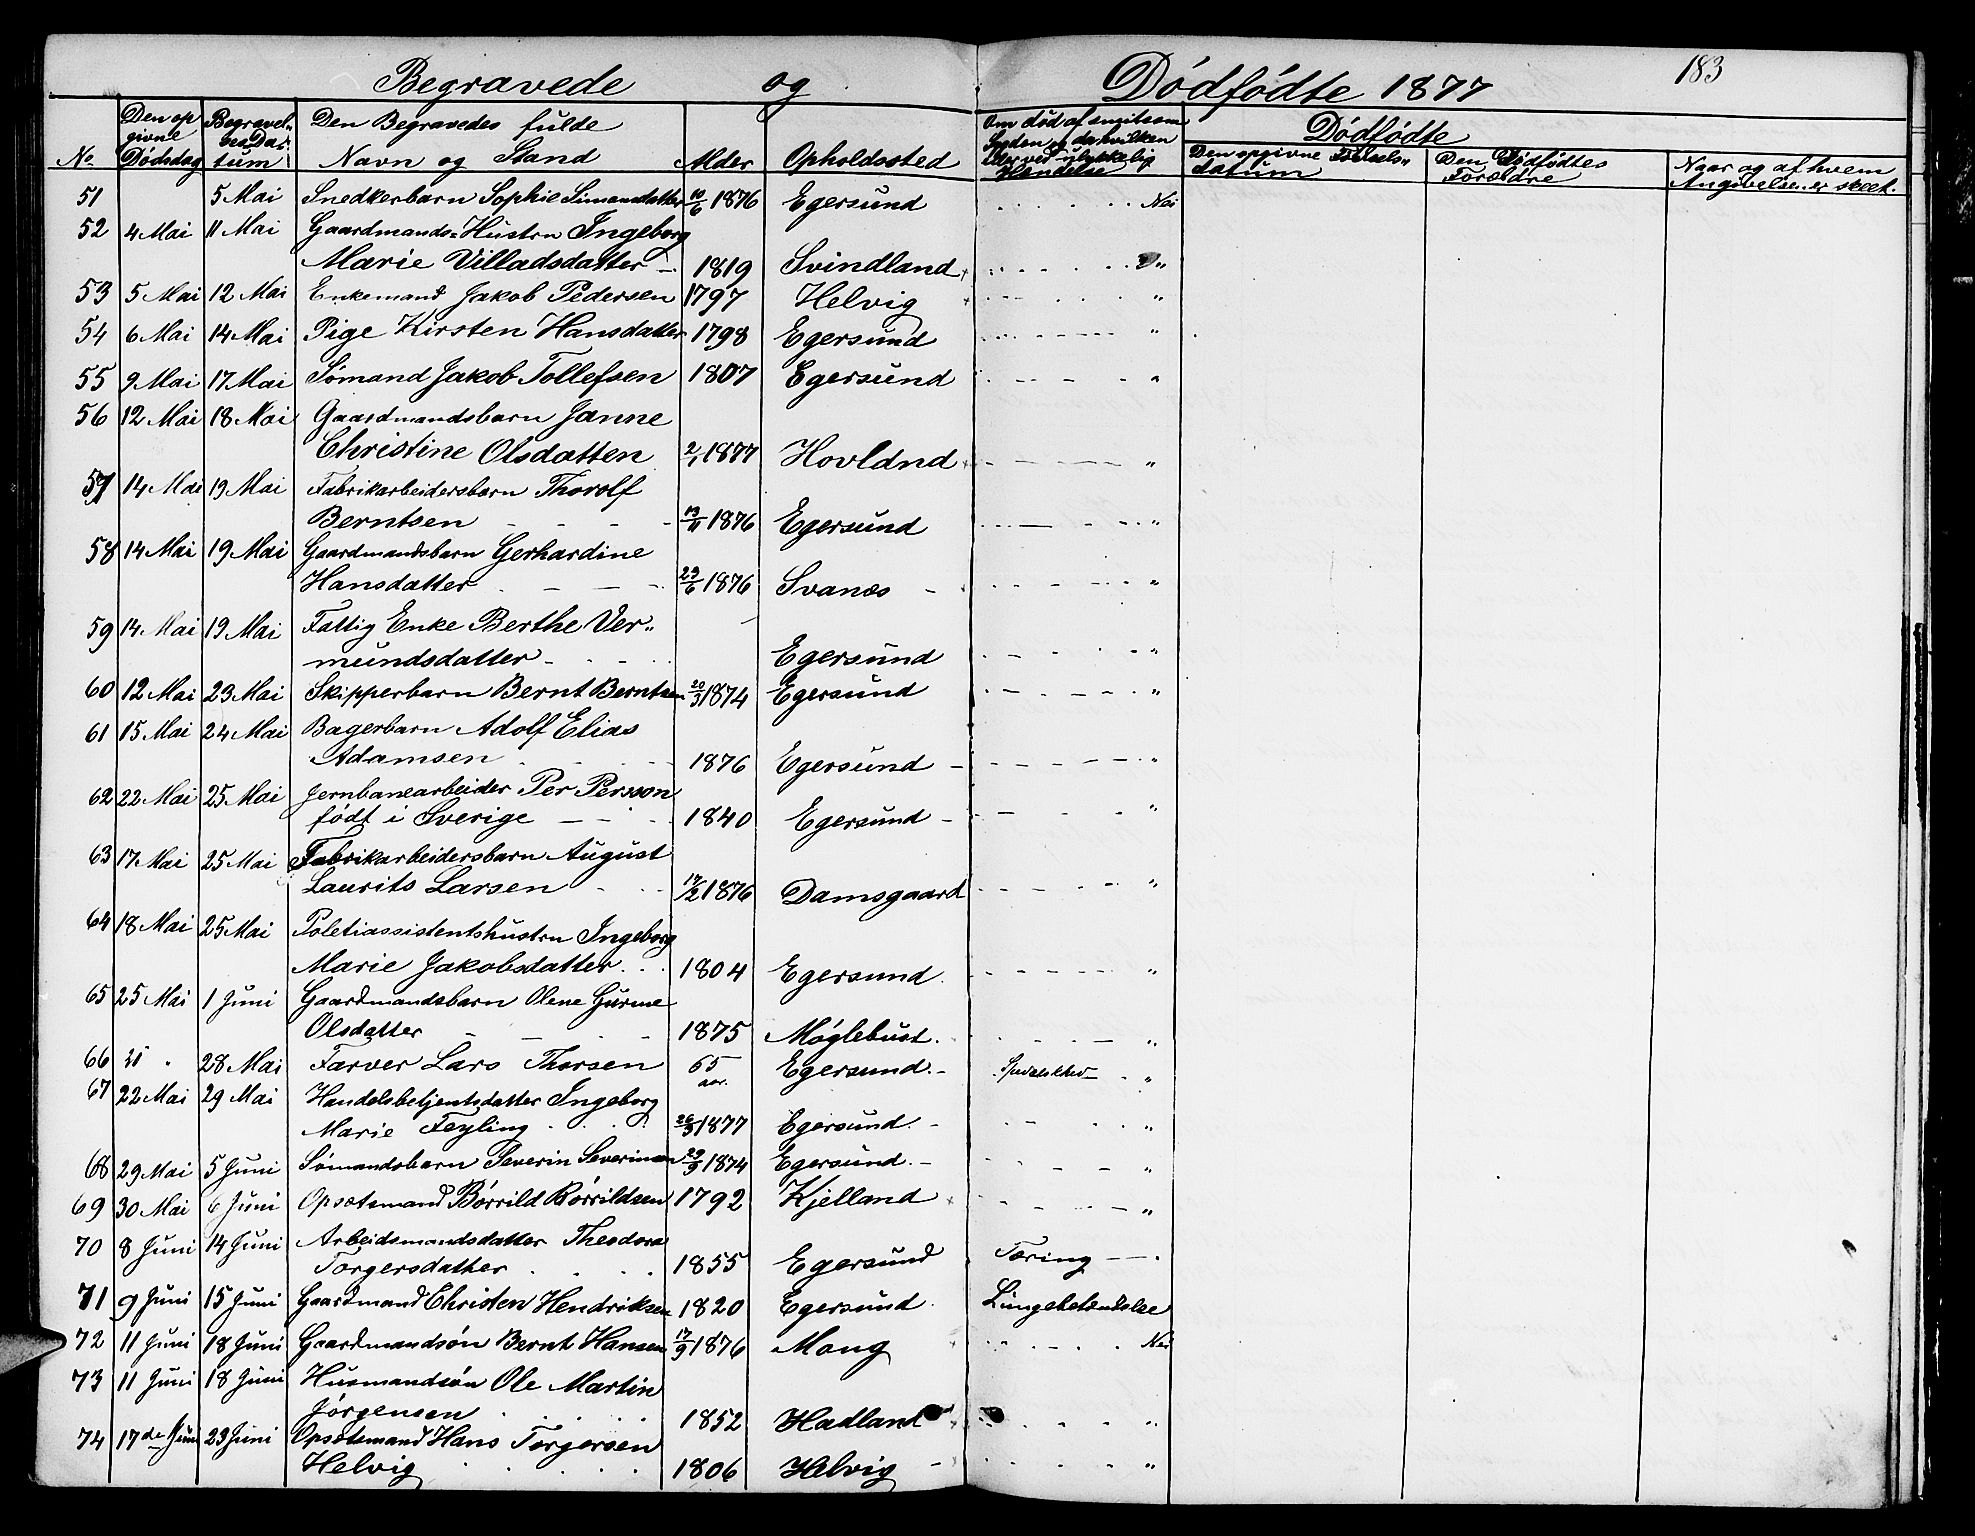 Begravede og Dödfödte 1877 183
No. Den opgivne Dödsdag Begravelsens Datum Den Begravedes fulde Navn og Stand Alder Opholdssted Om död af smitsom Sygdom og da hvilken eller ved ulykkelig Hændelse Dödfödte Den opgivne Födsels datum Den Dödfödtes Forældre Naar og af hvem Angivelsen er skeet.
51 5 Mai Snedkerbarn Sophie Simonsdatter 10/6 1876 Egersund Nei
52 4 Mai 11 Mai Gaardmands Hustru Ingeborg
Marie Villadsdatter 1819 Svindland "
53 5 Mai 12 Mai Enkemand Jakob Pedersen 1797 Helvig "
54 6 Mai 14 Mai Pige Kirsten Hansdatter 1798 Egersund "
55 9 Mai 17 Mai Sömand Jakob Tollefsen 1807 Egersund "
56 12 Mai 18 Mai Gaardmandsbarn Janne
Christine Olsdatten 2/1 1877 Hovldnd "
57 14 Mai 19 Mai Fabrikarbeidersbarn Thorolf
Berntsen 13/11 1876 Egersund "
58 14 Mai 19 Mai Gaardmandsbarn Gerhardine
Hansdatter 29/6 1876 Svanæs "
59 14 Mai 19 Mai Fattig Enke Berthe Ver„
mundsdatter Egersund "
60 12 Mai 23 Mai Skipperbarn Bernt Berntsen 20/3 1874 Egersund "
61 15 Mai 24 Mai Bagerbarn Adolf Elias
Adamsen 1876 Egersund "
62 22 Mai 25 Mai Jernbanearbeider Per Persson
födt i Sverige 1840 Egersund "
63 17 Mai 25 Mai Fabrikarbeidersbarn August
Laurits Larsen 17/2 1876 Damsgaard "
64 18 Mai 25 Mai Poletiassistentshustru Ingeborg
Marie Jakobsdatter 1804 Egersund "
65 25 Mai 1 Juni Gaardmandsbarn Olene Gurine
Olsdatter 1875 Möglebust "
66 28 Mai Farver Lars Thorsen 65 aar. Egersund Spedalskhed "
67 22 Mai 29 Mai Handelsbetjentsdatter Ingeborg
Marie Feyling 26/3 1877 Egersund "
68 29 Mai 5 Juni Sömandsbarn Severin Severinsen 29/9 1874 Egersund "
69 30 Mai 6 Juni Opsætsmand Börrild Börrildsen 1792 Kjelland "
70 8 Juni 14 Juni Arbeidsmandsdatter Theodora
Torgersdatter 1855 Egersund Tæring
71 9 Juni 15 Juni Gaardmand Christen Hendriksen 1820 Egersund Lungebetændelse
72 11 Juni 18 Juni Gaardmandsön Bernt Hansen 17/9 1876 Mong Nei
73 11 Juni 18 Juni Husmandsön Ole Martin
Jörgensen 1852 Hadland "
74 17de Juni 23 Juni Opsætsmand Hans Torgersen
Helvig 1806 Helvig "